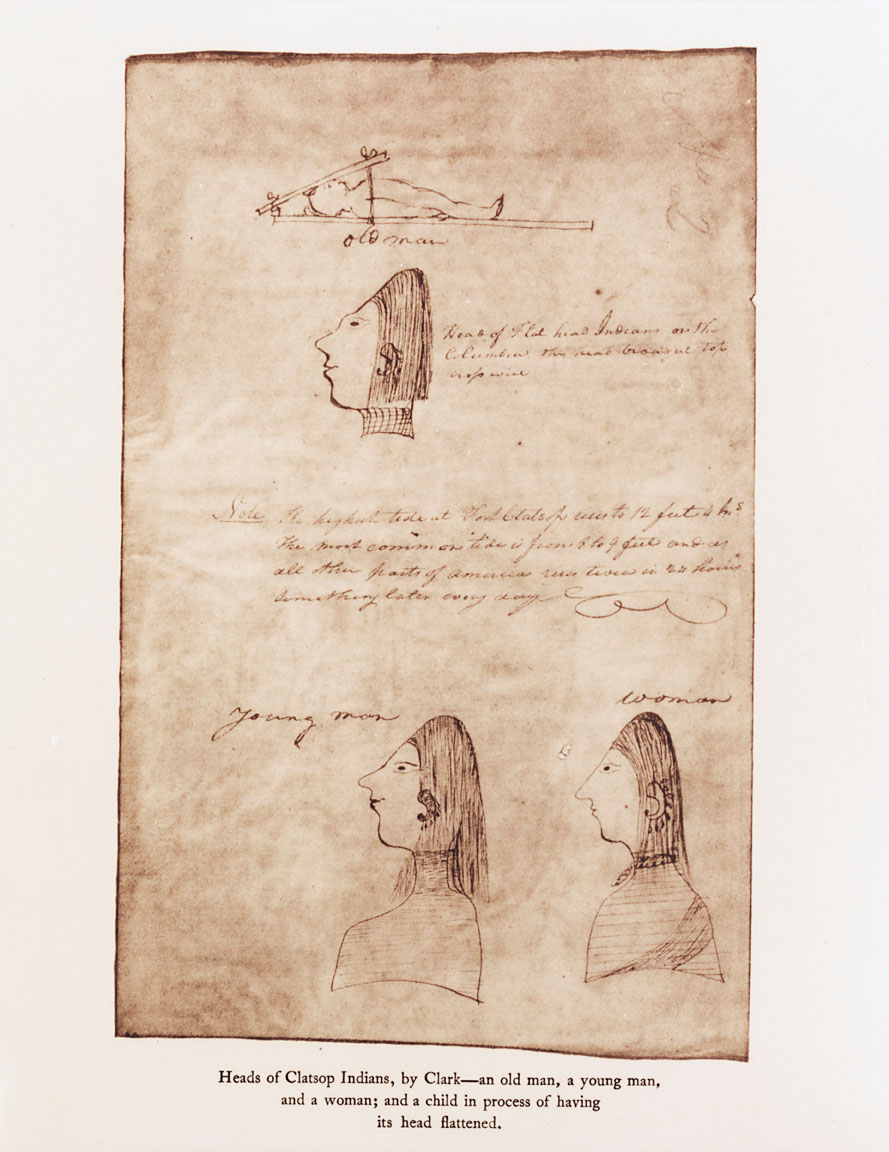 old man
Head of Flat head Indians on the
Columbia the head broad at top
cross wise
Note The highest tide at Fort Clatsop rises to 12 feet 4 Ins
The most common tide is from 8 to 9 feet and as
all other parts of america rises twice in 24 hours
something later every day
young man
woman
Heads of Clatsop Indians, by Clark—an old man, a young man,
and a woman; and a child in process of having
its head flattened.